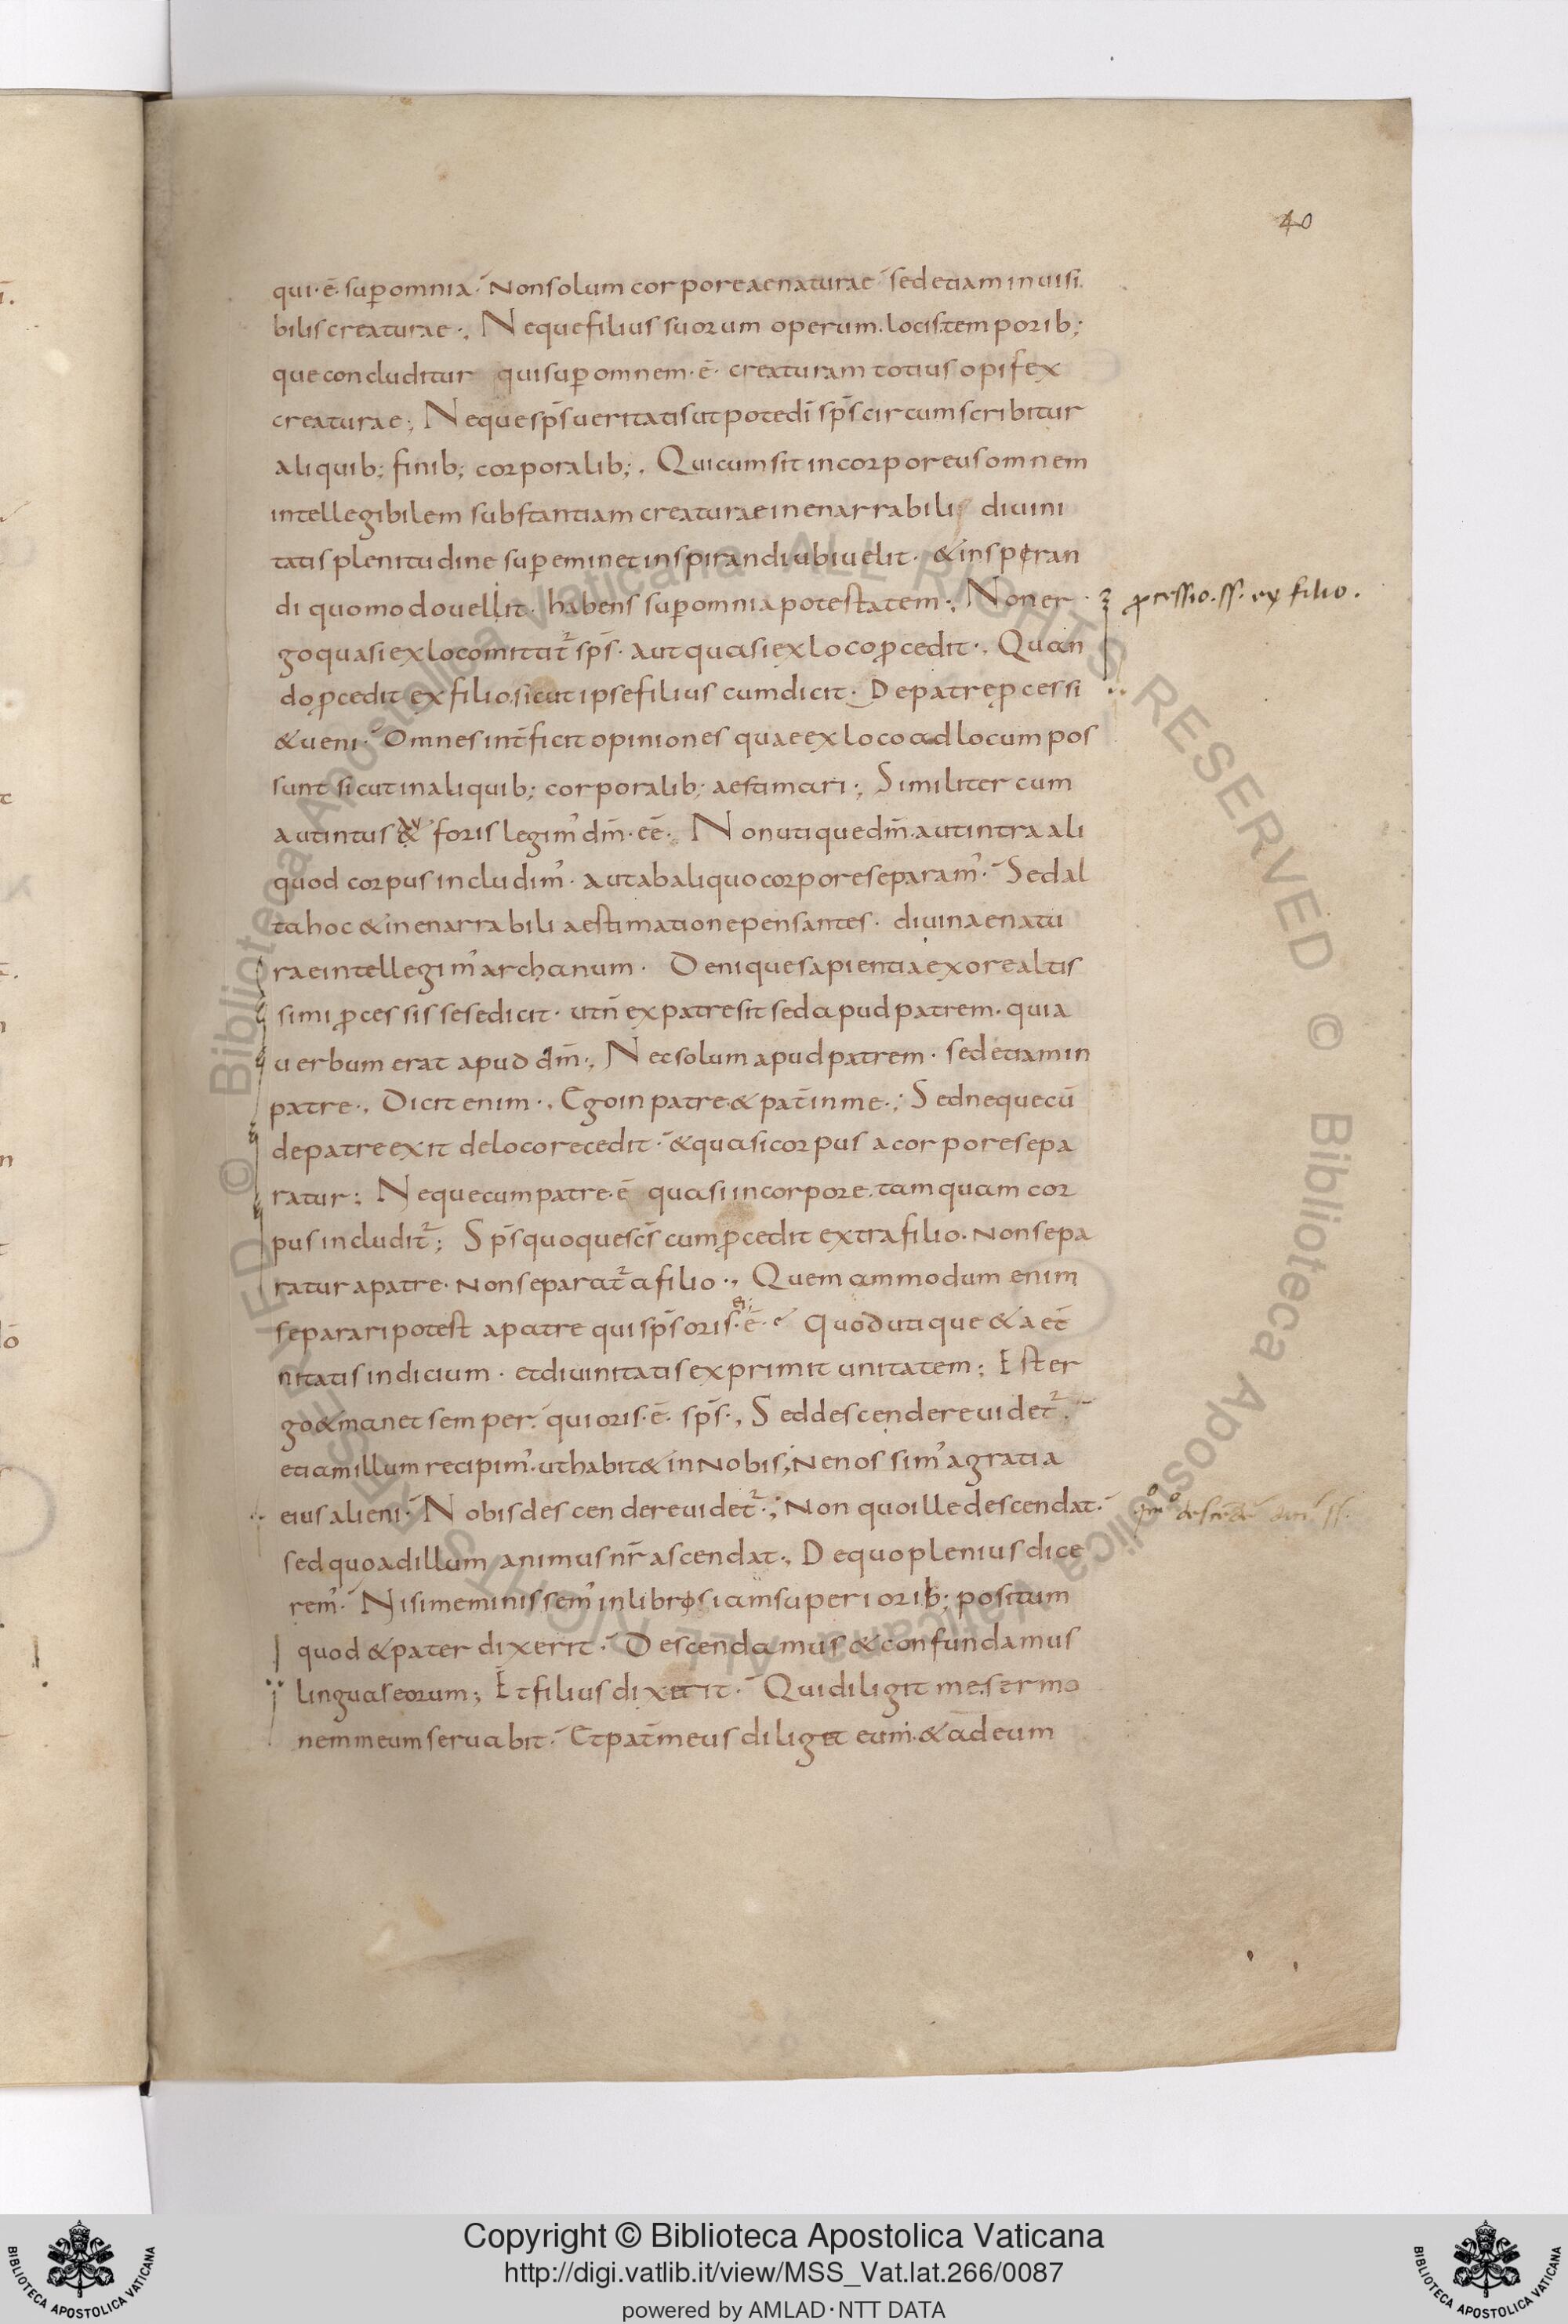 40
qui·ē·sup̄omnia·́ Non solum corporeae naturae·́ sed etiam inuisi
bilis creaturae·, Neque filius suorum operum. locis. temporib;
que concluditur qui sup̄ omnem·ē· creaturam totius opifex
creaturae; Neque sp̄s ueritatis utpote dī sp̄s circumscribitur
aliquib; finib; corporalib;, Qui cum sit incorporeus omnem
intellegibilem substantiam creaturae inenarrabili diuini
tatis plenitudine sup̄eminet inspirandi ubi uelit· & insperan
di quomodo uellit· habens sup̄omnia potestatem·, Non er
ꝓcessio.ss. ex filio.
go quasi ex loco mittit᷑ sp̄s· aut quasi ex loco ꝓcedit·, Quan
do ꝓcedit ex filio. sicut ipse filius cum dicit· De patre ꝓcessi
& ueni·́ Omnes int̄ficit opiniones quae ex loco ad locum pos
sunt sicut in aliquib; corporalib; aestimari·, Similiter cum
aut intus & foris legim᾽ dm̄·eē· Non utique dm̄. aut intra ali
quod corpus includim᾽· aut ab aliquo corpore separam᾽·́ Sed al
ta hoc & inenarrabili aestimatione pensantes· diuinae natu
rae intellegim᾽ archanum· Denique sapientia ex ore altis
simi ꝓcessissese dicit· utn̄ ex patre sit sed apud patrem· quia
uerbum erat apud dm̄·, Nec solum apud patrem· sed etiam in
patre·, Dicit enim·, Ego in patre & pat̄ in me·; Sed neque cū
de patre exit de loco recedit·́ & quasi corpus a corpore sepa
ratur; Neque cum patre·ē quasi in corpore. tamquam cor
pus includit᷑; Sp̄s quoque scs̄ cum ꝓcedit extra filio. Non sepa
ratur a patre· Non separat᷑ a filio·, Quemammodum enim
separari potest a patre qui sp̄s oris·ē· Quod utique & aet̄
nitatis indicium· et diuinitatis exprimit unitatem; Est er
go & manet semper·́ qui oris·ē· sp̄s·, Sed descendere uidet᷑·́
etiam illum recipim᾽· ut habit& in nobis; Ne nos sim᾽ a gratia
eius alieni·́ Nobis descendere uidet᷑·; Non quo ille descendat·́
sed quo ad illum animus nr̄ ascendat·, De quo plenius dice
rem᾽·́ Nisi meminissem᾽ in libros iam superiorib; positum
quod & pater dixerit·́ Descendamus & confundamus
linguas eorum; Et filius dixerit·́ Qui diligit me. sermo
nem meum seruabit·́ Et pat̄ meus diliget eum. & ad eum
© Biblioteca Apostolica Vaticana ALL RIGHTS RESERVED
© Biblioteca Apostolica Vaticana ALL RIGHTS RESERVED
Copyright © Biblioteca Apostolica Vaticana
http://digi.vatlib.it/view/MSS_Vat.lat.266/0087
powered by AMLAD·NTT DATA
BIBLIOTECA APOSTOLICA VATICANA
BIBLIOTECA APOSTOLICA VATICANA